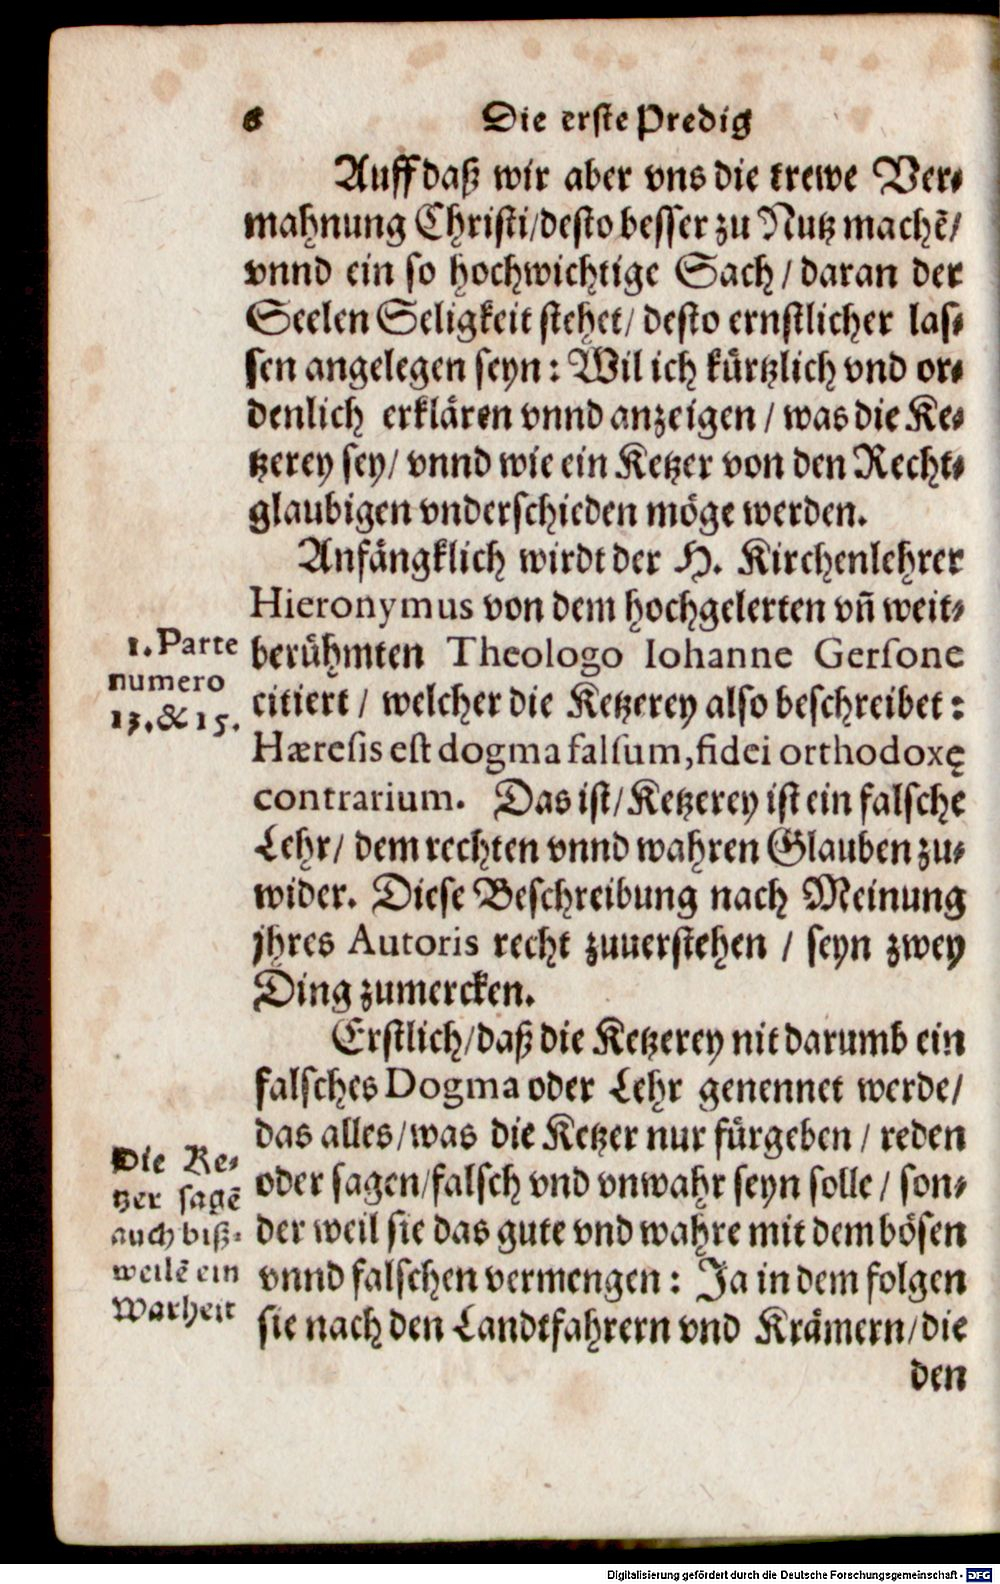 6 Die erste Predig
Auff daß wir aber vns die trewe Ver-
mahnung Christi/desto besser zu Nutz machẽ/
vnnd ein so hochwichtige Sach/ daran der
Seelen Seligkeit stehet/ desto ernstlicher las-
sen angelegen seyn: Wil ich kürtzlich vnd or-
denlich erklären vnnd anzeigen / was die Ke-
tzerey sey/ vnnd wie ein Ketzer von den Recht-
glaubigen vnderschieden möge werden.
Anfängklich wirdt der H. Kirchenlehrer
Hieronymus von dem hochgelerten vñ weit-
berühmten Theologo Iohanne Gersone
1. Parte
numero
13. & 15.
citiert / welcher die Ketzerey also beschreibet:
Hæresis est dogma falsum, fidei orthodoxę
contrarium. Das ist/ Ketzerey ist ein falsche
Lehr/ dem rechten vnnd wahren Glauben zu-
wider. Diese Beschreibung nach Meinung
jhres Autoris recht zuuerstehen / seyn zwey
Ding zumercken.
Erstlich/daß die Ketzerey nit darumb ein
falsches Dogma oder Lehr genennet werde/
das alles/was die Ketzer nur fürgeben / reden
oder sagen/falsch vnd vnwahr seyn solle / son-
der weil sie das gute vnd wahre mit dem bösen
vnnd falschen vermengen: Ja in dem folgen
sie nach den Landtfahrern vnd Krämern/die
Die Ke-
tzer sagẽ
auch biß-
weilẽ ein
Warheit
den
Digitalisierung gefördert durch die Deutsche Forschungsgemeinschaft - DFG